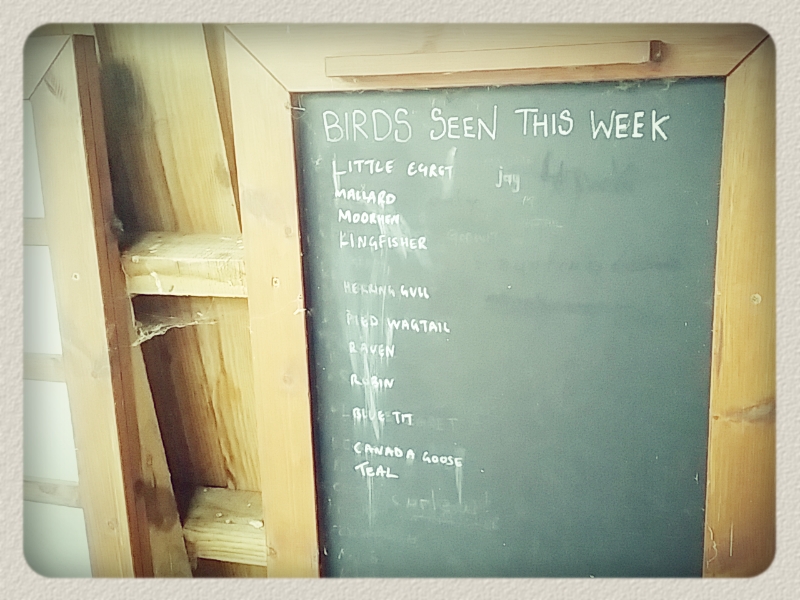 BIRDS SEEN THIS WEEK
LITTLE EGRET jay
MALLARD
MOORHEN
KINGFISHER
HERRING GULL
PIED WAGTAIL
RAVEN
ROBIN
BLUE TIT
CANADA GOOSE
TEAL